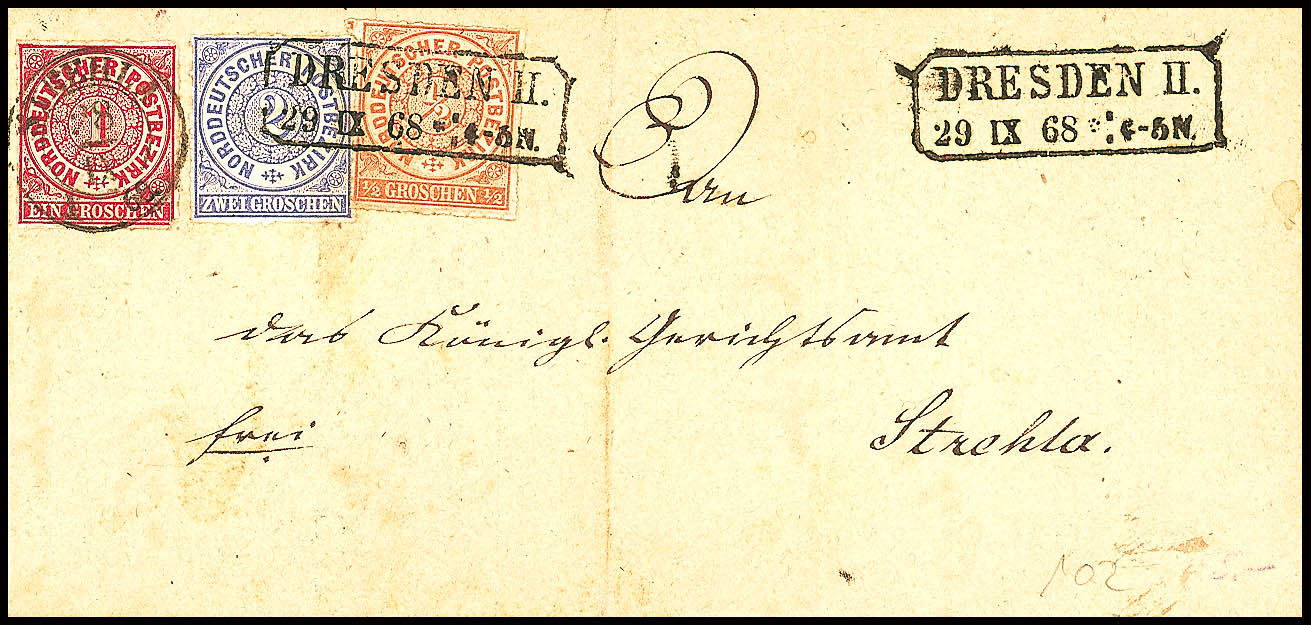 NORDDEUTSCHER POSTBEZIRK
1
EIN GROSCHEN
NORDDEUTSCHER POSTBEZIRK
2
ZWEI GROSCHEN
NORDDEUTSCHER POSTBEZIRK
1/2
½ GROSCHEN ½
DRESDEN II.
29 IX 68 4-5 N.
DRESDEN II.
29 IX 68 4-5 N.
An
das Königl. Gerichtsamt
frei
Strehla.